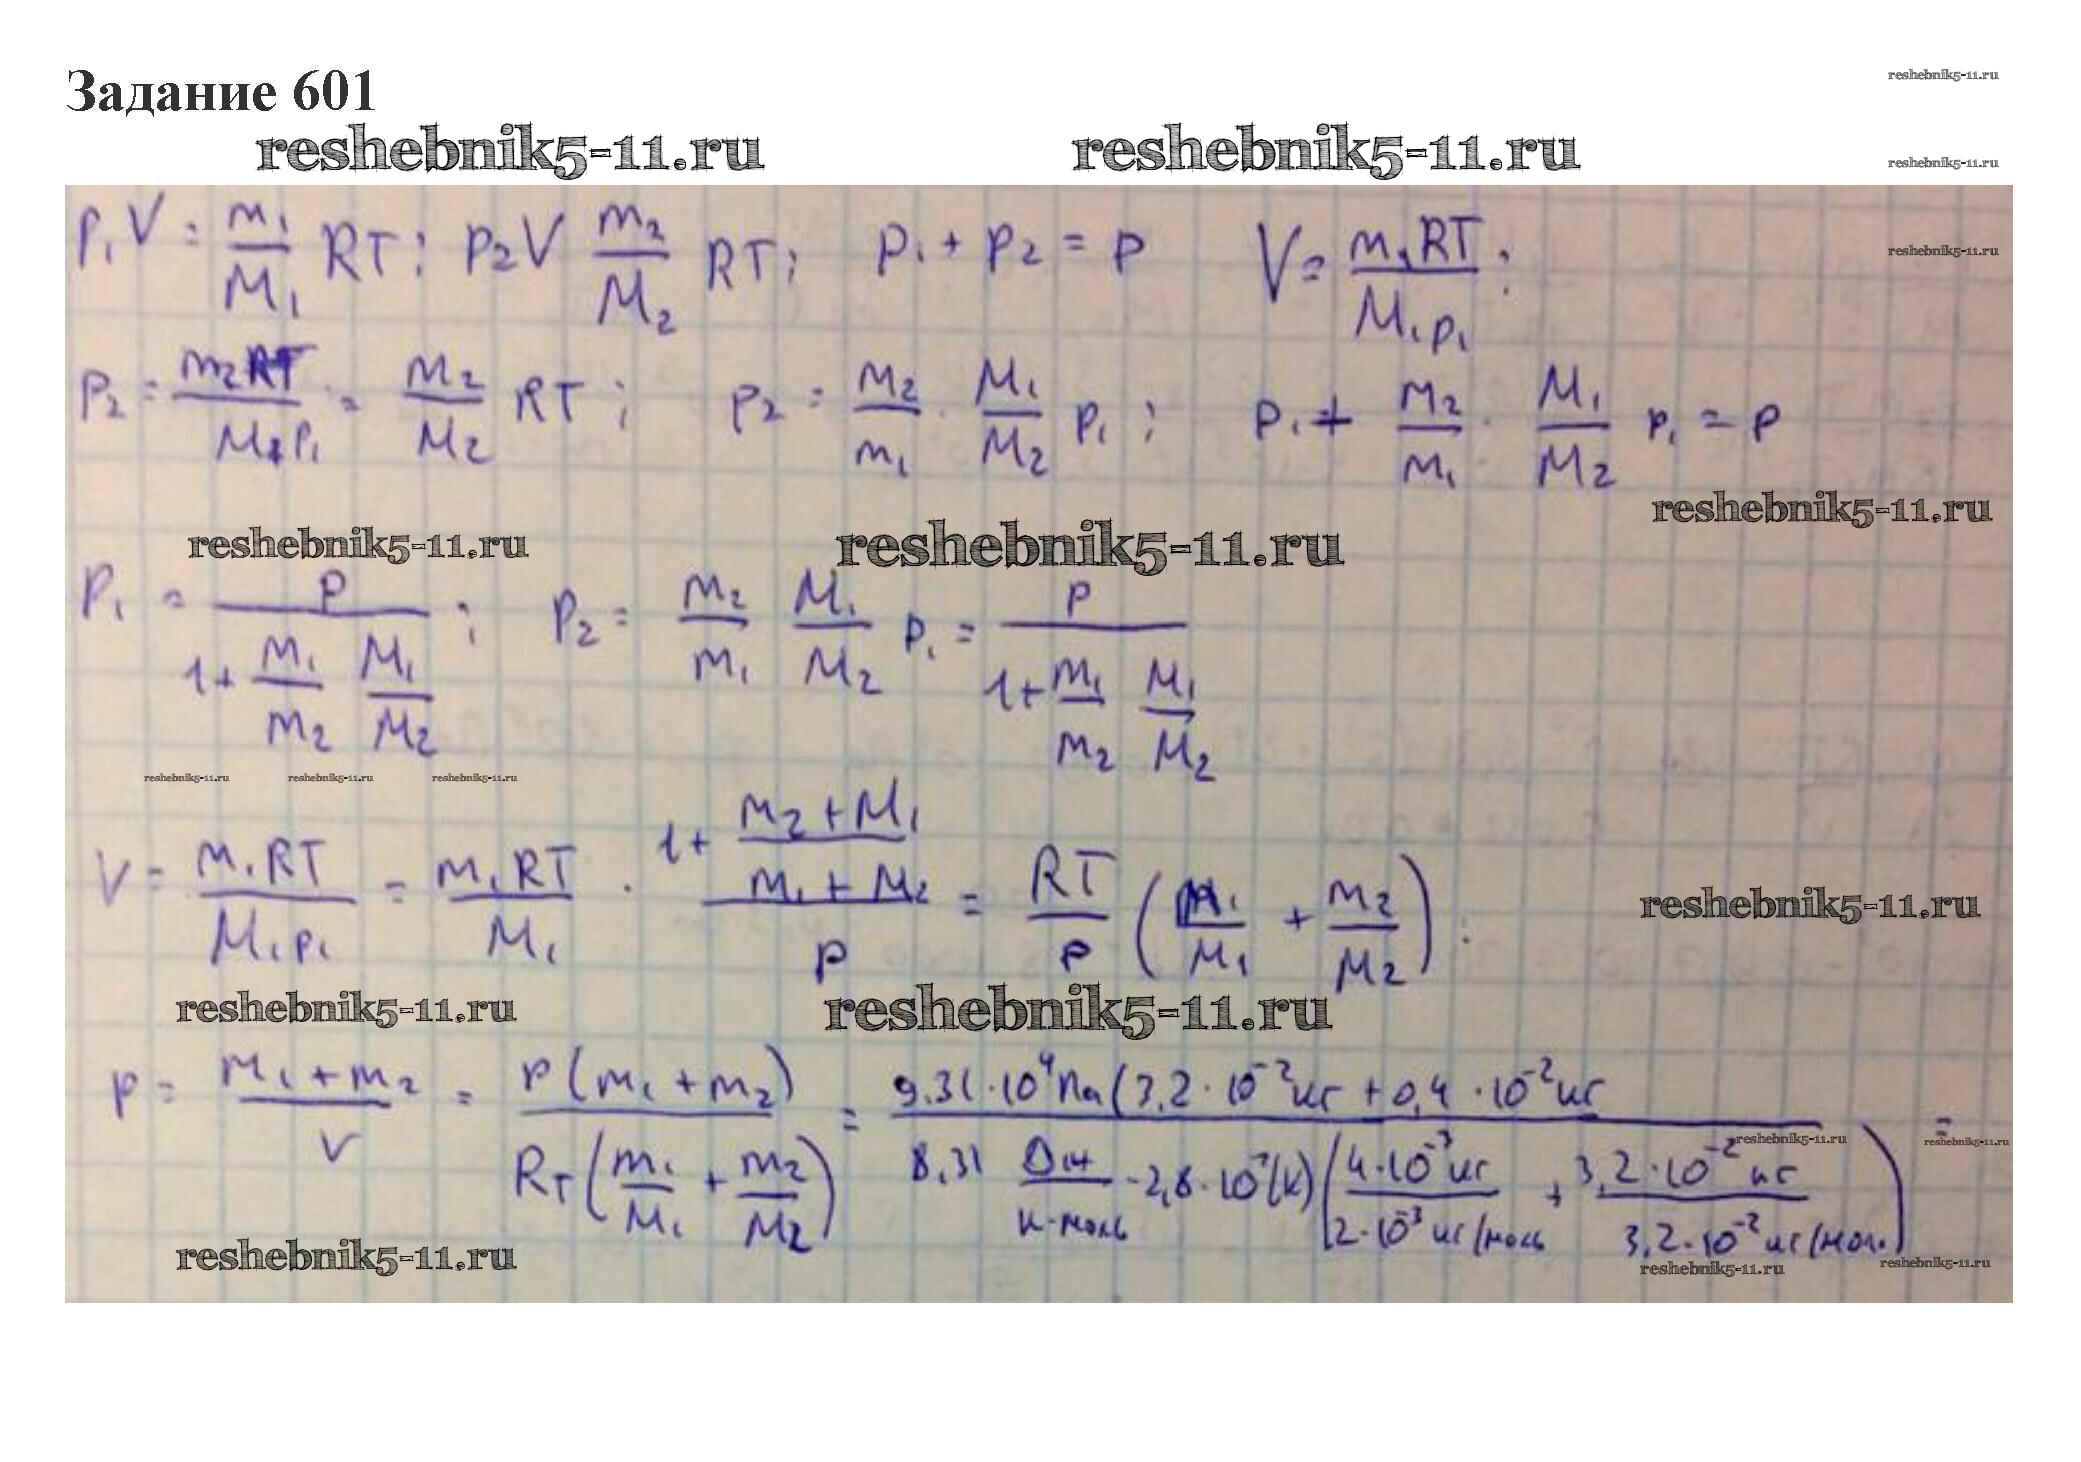 Задание 601
reshebnik5-11.ru
reshebnik5-11.ru reshebnik5-11.ru reshebnik5-11.ru
p₁V = m₁/M₁ RT; p₂V m₂/M₂ RT; p₁ + p₂ = p V = m₁RT/M₁p₁;
reshebnik5-11.ru
p₂ = m₂RT/M₁p₁ = m₂/M₂ RT; p₂ = m₂/m₁ · M₁/M₂ p₁; p₁ + m₂/m₁ · M₁/M₂ p₁ = p
reshebnik5-11.ru
reshebnik5-11.ru reshebnik5-11.ru
p₁ = p/(1 + m₁/m₂ M₁/M₂); p₂ = m₂/m₁ M₁/M₂ p₁ = p/(1 + m₁/m₂ M₁/M₂)
reshebnik5-11.ru reshebnik5-11.ru reshebnik5-11.ru
V = m₁RT/M₁p₁ = m₁RT/M₁ · (1 + (m₂ + M₁)/(m₁ + M₂))/p = RT/p (m₁/M₁ + m₂/M₂):
reshebnik5-11.ru
reshebnik5-11.ru reshebnik5-11.ru
p = (m₁ + m₂)/V = p(m₁ + m₂)/RT(m₁/M₁ + m₂/M₂) = 9.31 · 10⁴ Па (3,2 · 10⁻² кг + 0,4 · 10⁻² кг / 8,31 Дж/К·моль · 2,8 · 10² (К) (4 · 10⁻³ кг/2 · 10⁻³ кг/моль + 3,2 · 10⁻² кг/3,2 · 10⁻² кг/мол.) =
reshebnik5-11.ru reshebnik5-11.ru
reshebnik5-11.ru reshebnik5-11.ru reshebnik5-11.ru